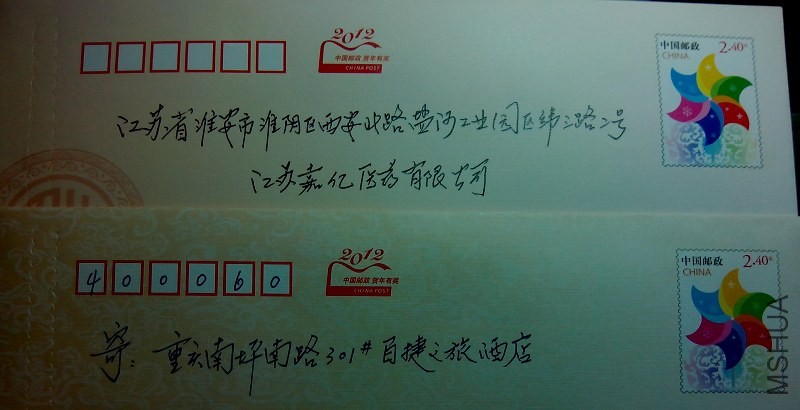 2012
中国邮政 贺年有奖
CHINA POST
中国邮政 2.40元
CHINA
江苏省淮安市淮阴区西安北路盐河工业园区纬三路2号
江苏嘉亿医药有限公司
2012
中国邮政 贺年有奖
CHINA POST
中国邮政 2.40元
CHINA
400060
寄：重庆南坪南路301#百捷之旅酒店
MSHUA